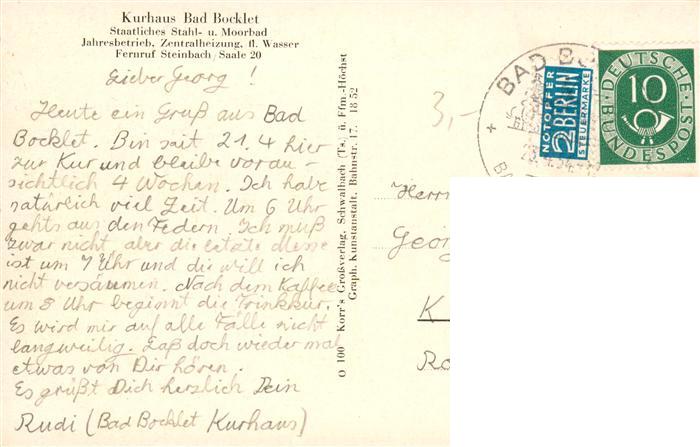 Kurhaus Bad Bocklet
Staatliches Stahl- u. Moorbad
Jahresbetrieb, Zentralheizung, fl. Wasser
Fernruf Steinbach/Saale 20
Lieber Georg!
Heute ein Gruß aus Bad
Bocklet. Bin seit 21.4 hier
zur Kur und bleibe vorau-
sichtlich 4 Wochen. Ich habe
natürlich viel Zeit. Um 6 Uhr
gehts aus den Federn. Ich muß
zwar nicht, aber die letzte Messe
ist um 7 Uhr und die will ich
nicht versäumen. Nach dem Kaffee
um 8 Uhr beginnt die Trinkkur.
Es wird mir auf alle Fälle nicht
langweilig. Laß doch wieder mal
etwas von Dir hören.
Es grüßt Dich herzlich Dein
Rudi (Bad Bocklet Kurhaus)
O 100 Korr's Großverlag, Schwalbach (Ts.) ü. Ffm-Höchst
Graph. Kunstanstalt, Bahnstr. 17. 18 52
3,-
BAD BO
NOTOPFER
2 BERLIN
STEUERMARKE
DEUTSCHE
10
BUNDESPOST
Herrn
Georg
K
Ro